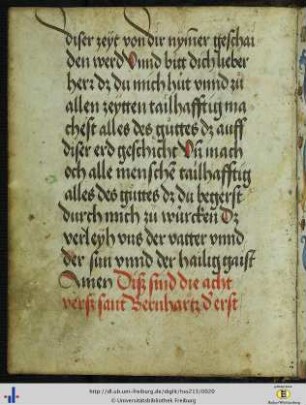 diser zeÿt von dir nym̄er geschai
den werd Vnnd bitt dich lieber
herr dz du mich hut vnnd zů
allen zeÿtten tailhafftig ma
chest alles des gůttes dz auff
diser erd geschicht Vn̄ mach
och alle menschē tailhafftig
alles des gůttes dz du begerst
durch mich zů würcken Dz
verleÿh vns der vatter vnnd
der sun vnnd der hailig gaist
Amen Diß sind die acht
verß sant Bernhartz d' erst
http://dl.ub.uni-freiburg.de/diglit/hs213/0020
© Universitätsbibliothek Freiburg
Baden-Württemberg